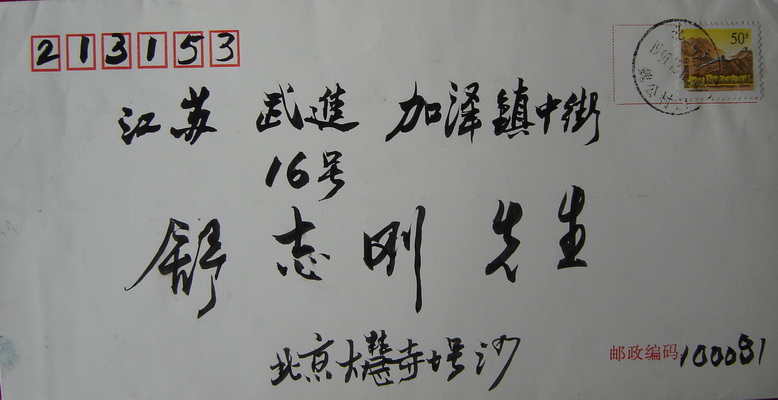 213153
50分
北
江苏 武進 加泽鎮中街
16号
舒志刚 先生
北京大慧寺 号 沙
邮政编码 100081